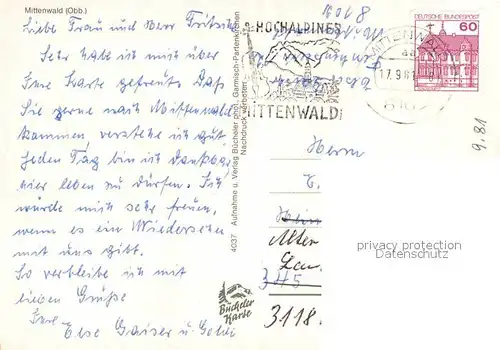 Mittenwald (Obb.)
Liebe Frau und Herr Fritsche
Sehr habe ich mich über
Ihre Karte gefreut. Daß
Sie gerne nach Mittenwald
kommen verstehe ich gut
Jeden Tag bin ich dankbar
hier leben zu dürfen. Ich
würde mich sehr freuen,
wenn es ein Wiedersehen
mit uns gibt.
So verbleibe ich mit
lieben Grüße
Ihre
Else Gaiser u.
4037 Aufnahme u. Verlag Bücheler phot. Garmisch-Partenkirchen
Nachdruck verboten
HOCHALPINES
MITTENWALD
MITTENW
17.9.81
8102
DEUTSCHE BUNDESPOST
60
9.81
Herrn
E.
Hein
Alter
345
3118.
Bücheler
Karte
privacy protection
Datenschutz